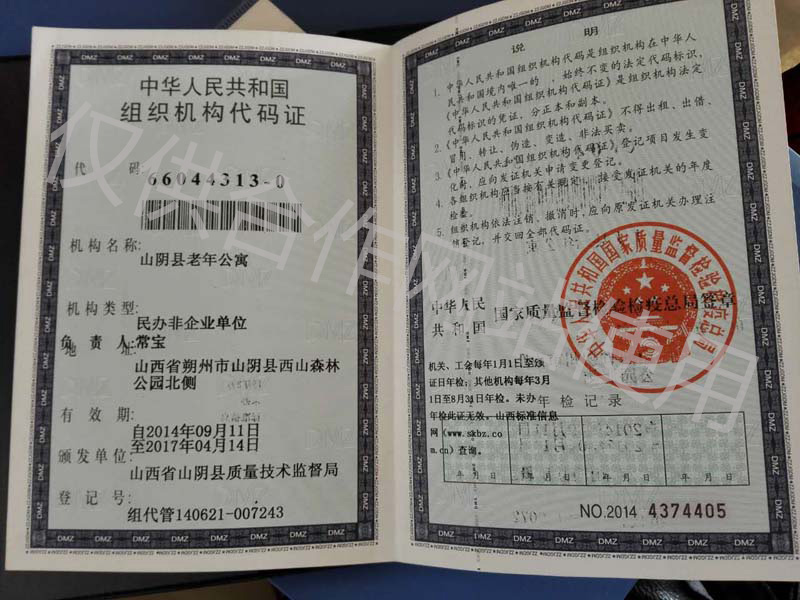 中华人民共和国
组织机构代码证
代 码: 66044313-0
机构名称:
山阴县老年公寓
机构类型:
民办非企业单位
负责人:常宝
地 址:
山西省朔州市山阴县西山森林
公园北侧
有效期:
自2014年09月11日
至2017年04月14日
颁发单位:
山西省山阴县质量技术监督局
登记号:
组代管140621-007243
说 明
1. 中华人民共和国组织机构代码是组织机构在中华人
民共和国境内唯一的、始终不变的法定代码标识,
《中华人民共和国组织机构代码证》是组织机构法定
代码标识的凭证,分正本和副本。
2.《中华人民共和国组织机构代码证》不得出租、出借、
冒用、转让、伪造、变造、非法买卖。
3.《中华人民共和国组织机构代码证》登记项目发生变
化时,应向发证机关申请变更登记。
4. 各组织机构应当按有关规定,接受发证机关的年度
检验。
5. 组织机构依法注销、撤消时,应向原发证机关办理注
销登记,并交回全部代码证。
中华人民
共和国 国家质量监督检验检疫总局签章
中华人民共和国国家质量监督检验检疫总局
机关、工会每年1月1日至颁
证日年检;其他机构每年3月
1日至8月31日年检。未办
年检记录
年检此证无效。山西标准信息
网(www.skbz.co
m.cn)查询。
年 月 日 年 月 日 年 月 日 年 月 日
NO.2014 4374405
仅供合作网站使用
DMZ